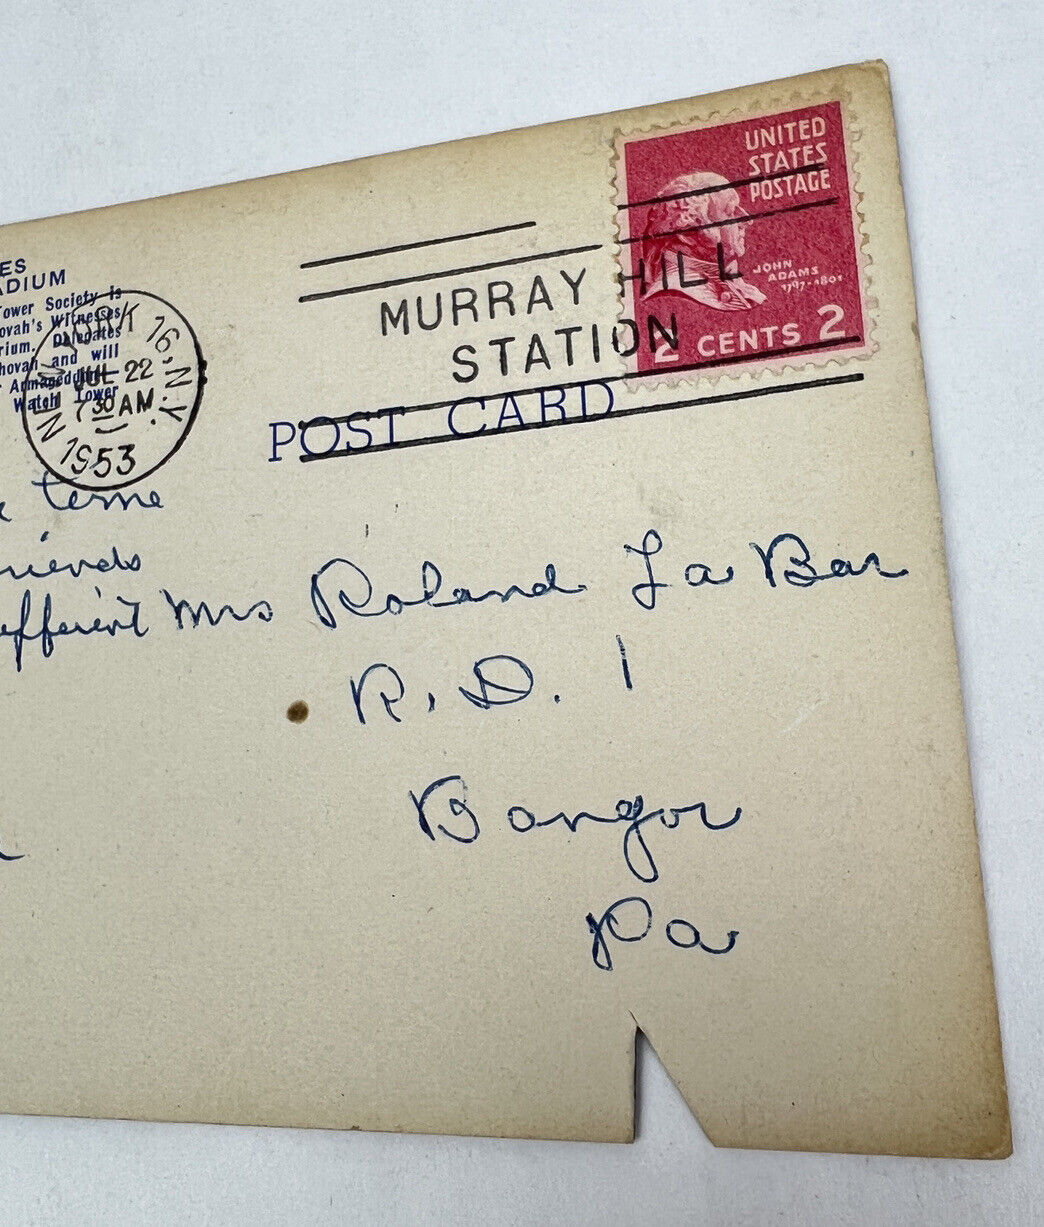 UNITED
STATES
POSTAGE
JOHN
ADAMS
1797-1801
2 CENTS 2
MURRAY HILL
STATION
POST CARD
NEW YORK 16, N.Y.
JUL 22
7 30 AM
1953
ES
ADIUM
ower Society is
ovah's Witnesses
rium. Delegates
hovah and will
Armageddon
Watch Tower
time
riends
efferent
Mrs Roland La Bar
R. D. 1
Bangor
Pa